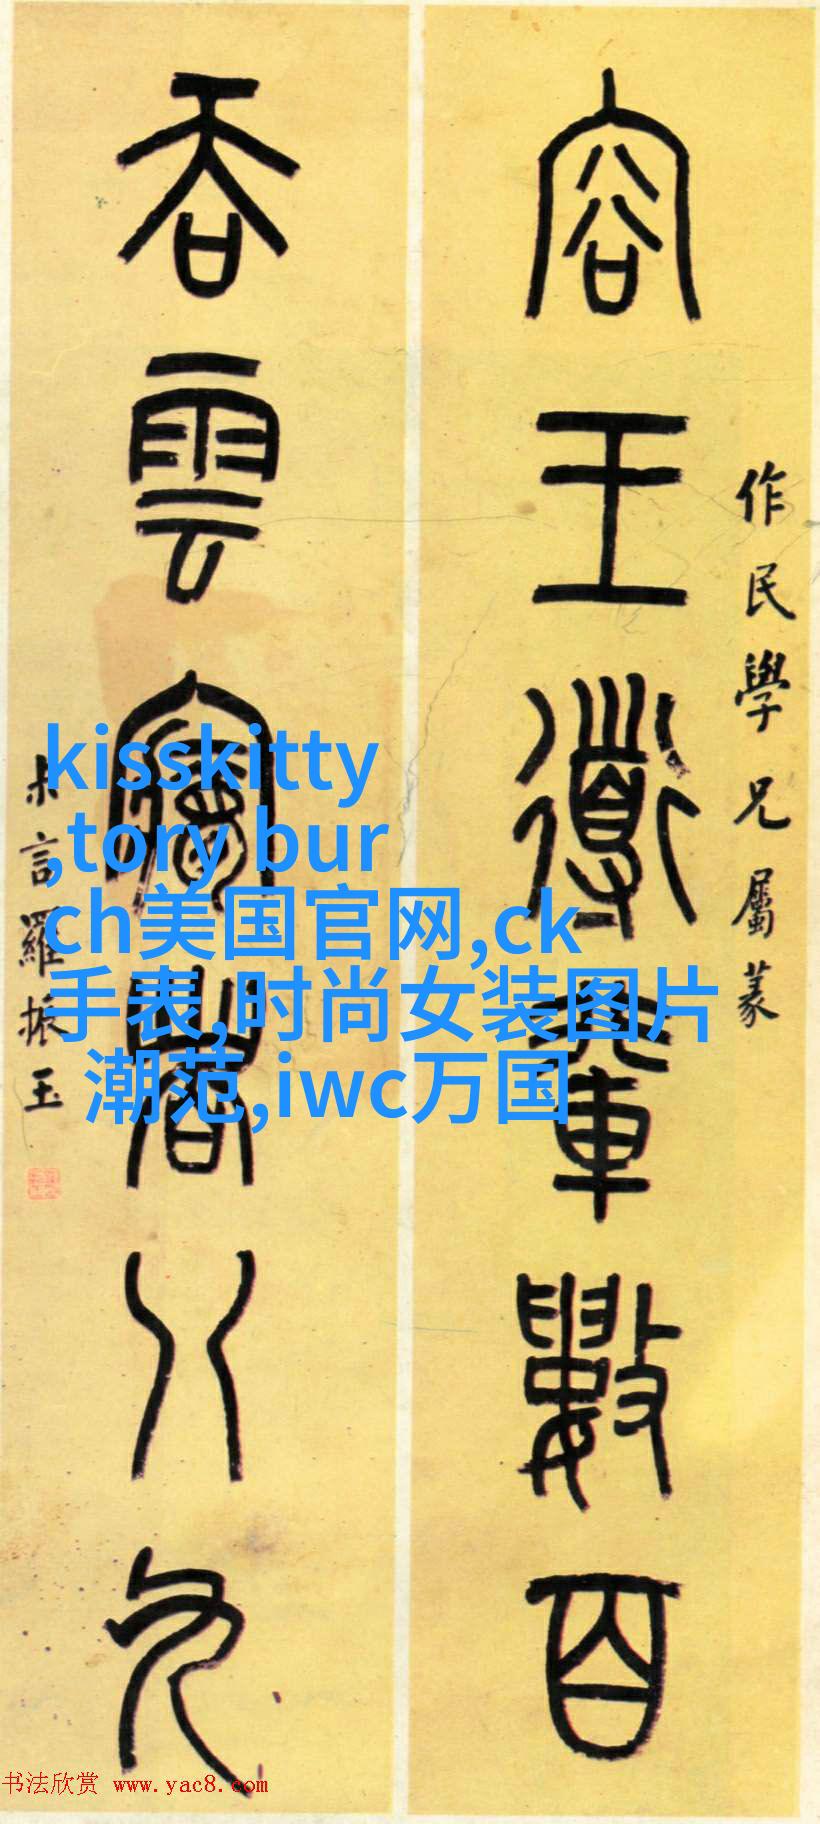 容王導輩數百
作民學兄屬篆
吞雲夢者八九
叔言羅振玉
kisskitty
,tory bur
ch美国官网,ck
手表,时尚女装图片
潮范,iwc万国
书法欣赏 www.yac8.com